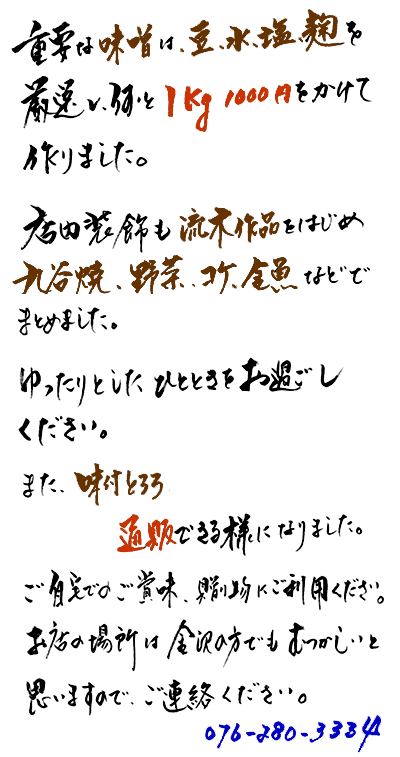 重要な味噌は、豆、水、塩、麹を
厳選し、何と1Kg 1000円をかけて
作りました。
店内装飾も流木作品をはじめ
九谷焼、野菜、コケ、金魚などで
まとめました。
ゆったりとしたひとときをお過ごし
ください。
また、味付とろろ
通販できる様になりました。
ご自宅でのご賞味、贈り物にご利用ください。
お店の場所は金沢の方でもむつかしいと
思いますので、ご連絡ください。
076-280-3334